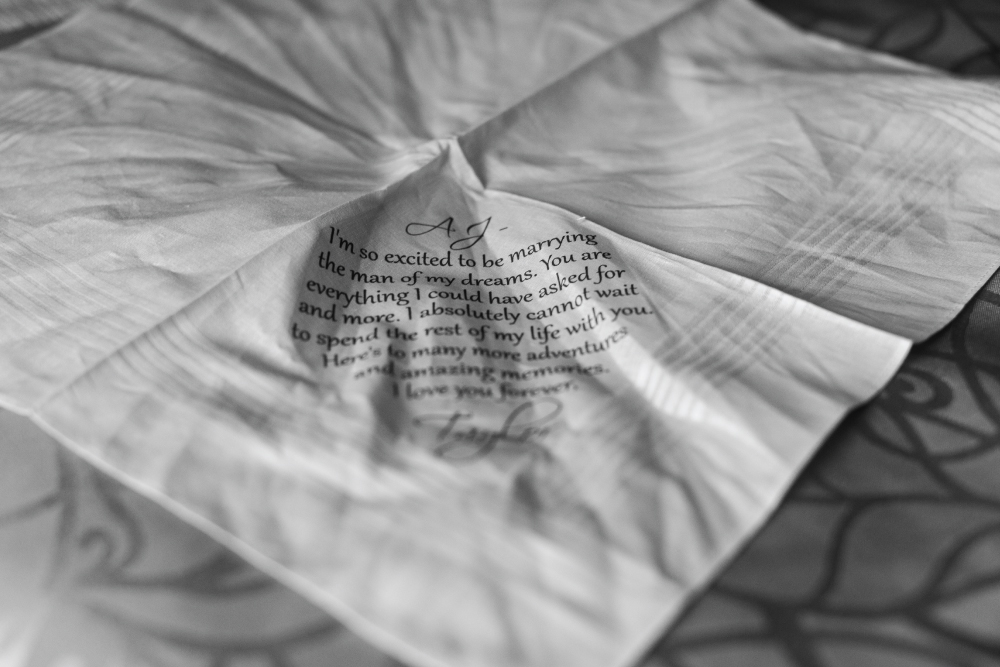 A.J -
I'm so excited to be marrying
the man of my dreams. You are
everything I could have asked for
and more. I absolutely cannot wait
to spend the rest of my life with you.
Here's to many more adventures
and amazing memories.
I love you forever.